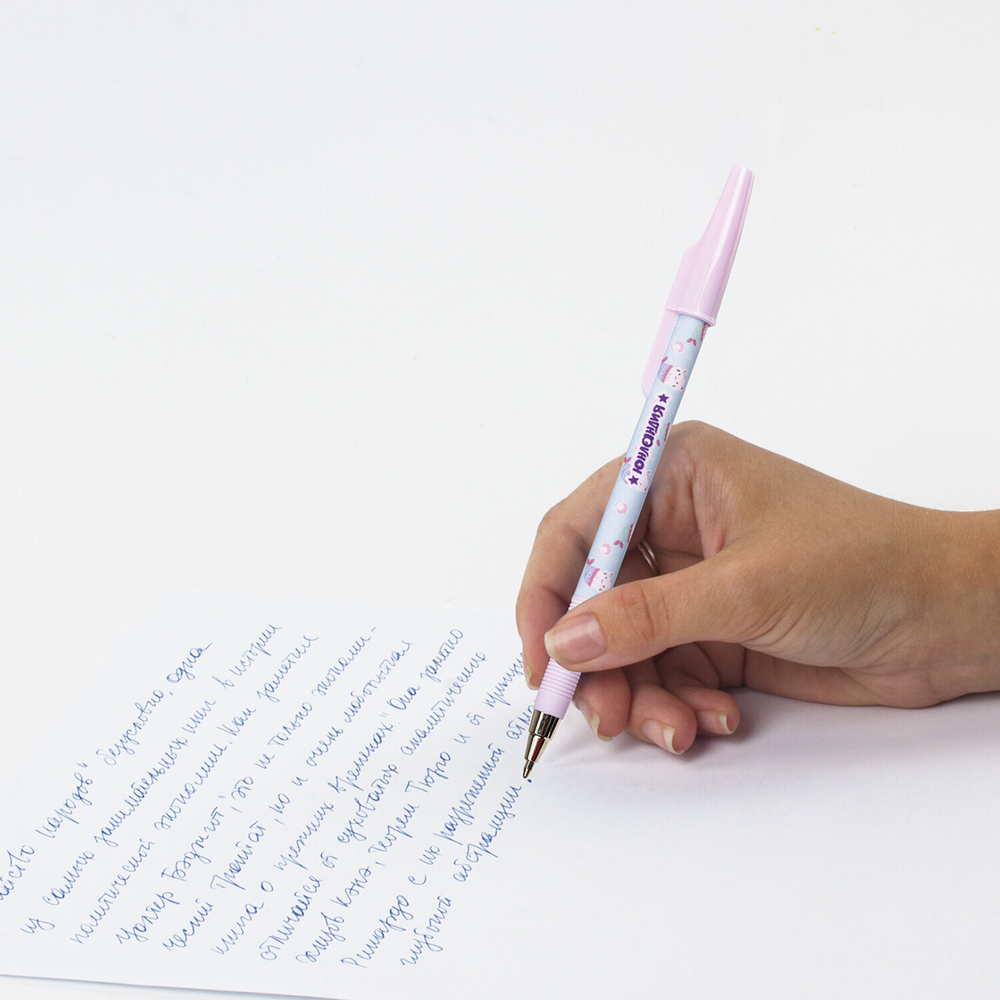 ЮНЛАНДИЯ
народов" безусловно, одна
из самых занимательных книг в истории
политической экономии. Как заметил
Уолтер Бэджгот, это не только экономи-
ческий трактат, но и очень любопытная
книга о прежних временах" Она заметно
отличается от суховатых аналитических
Кэнэ, Теорем Тюрго и от принци
Рикардо с их разреженной атмо
глубокой абстракции.